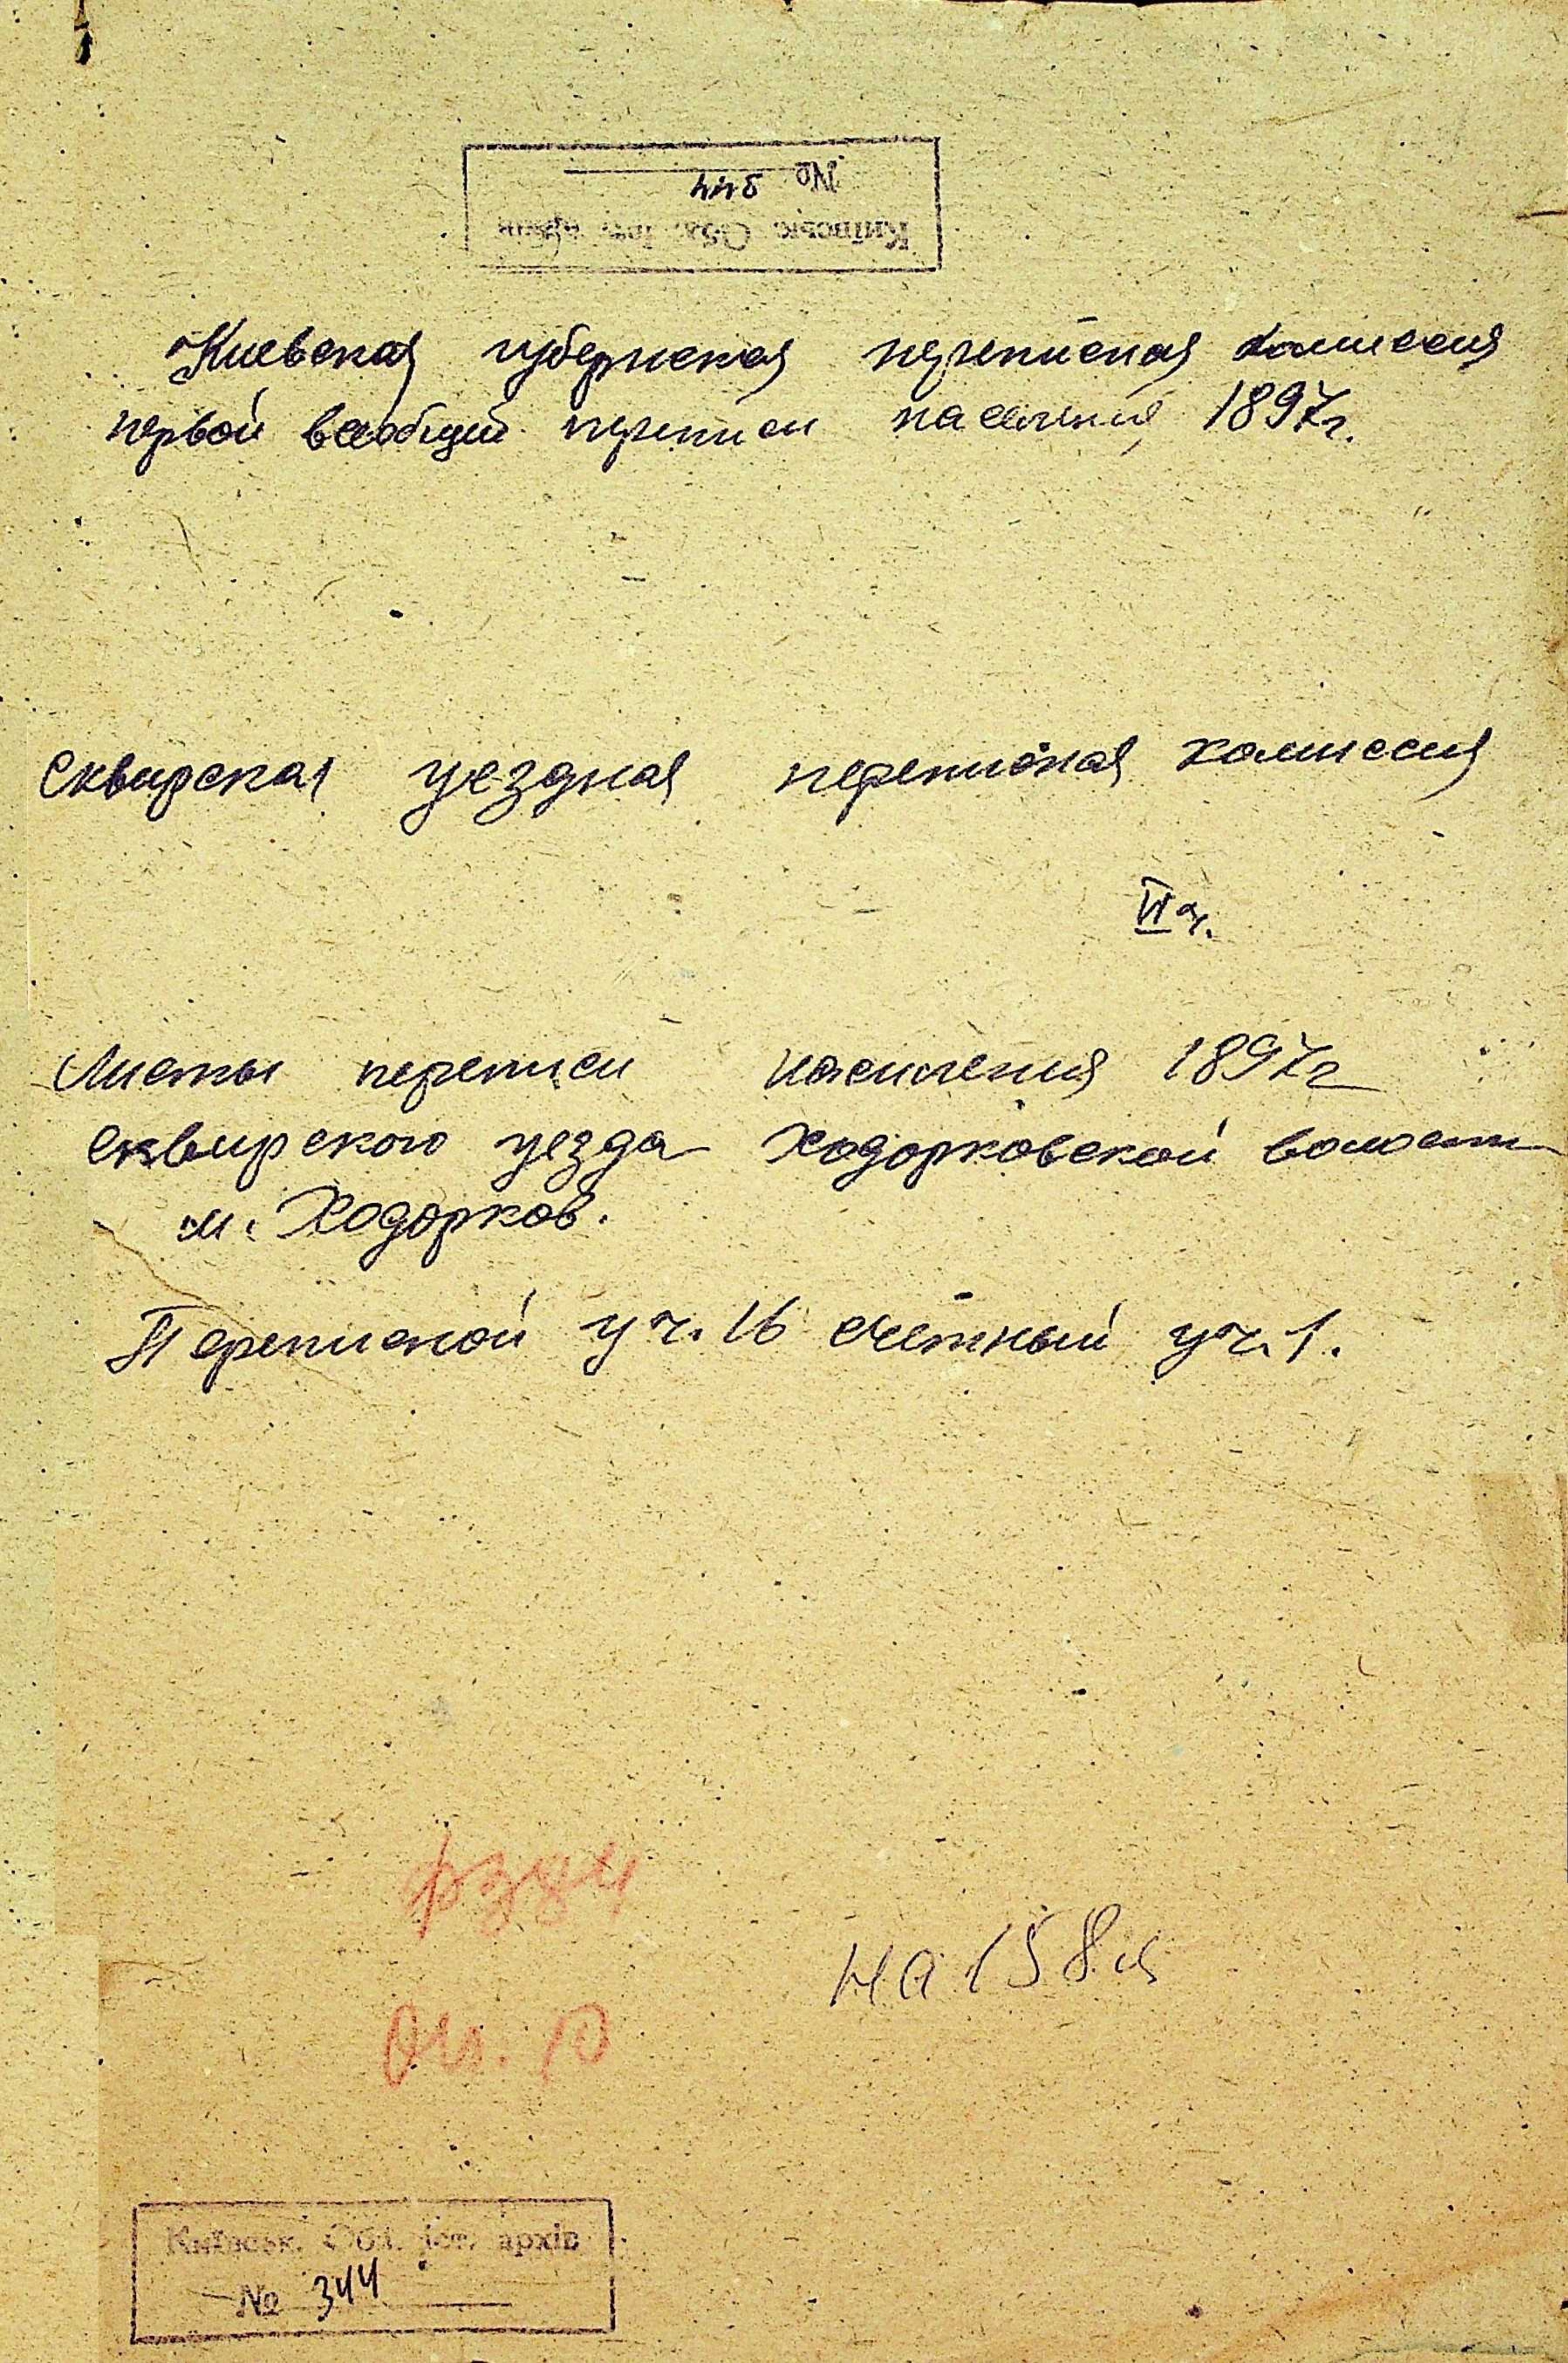 № 344
Київськ. Обл. іст. архів
Киевская губернская переписная комиссия
первой всеобщей переписи населения 1897г.
Сквирская уездная переписная комиссия
VI ч.
Листы переписи населения 1897г
Сквирского уезда Ходорковской волости
м. Ходорков.
Переписной уч. 16 счётный уч. 1.
ф 384
на 158 л
Оп. 10
Київськ. Обл. іст. архів
№ 344